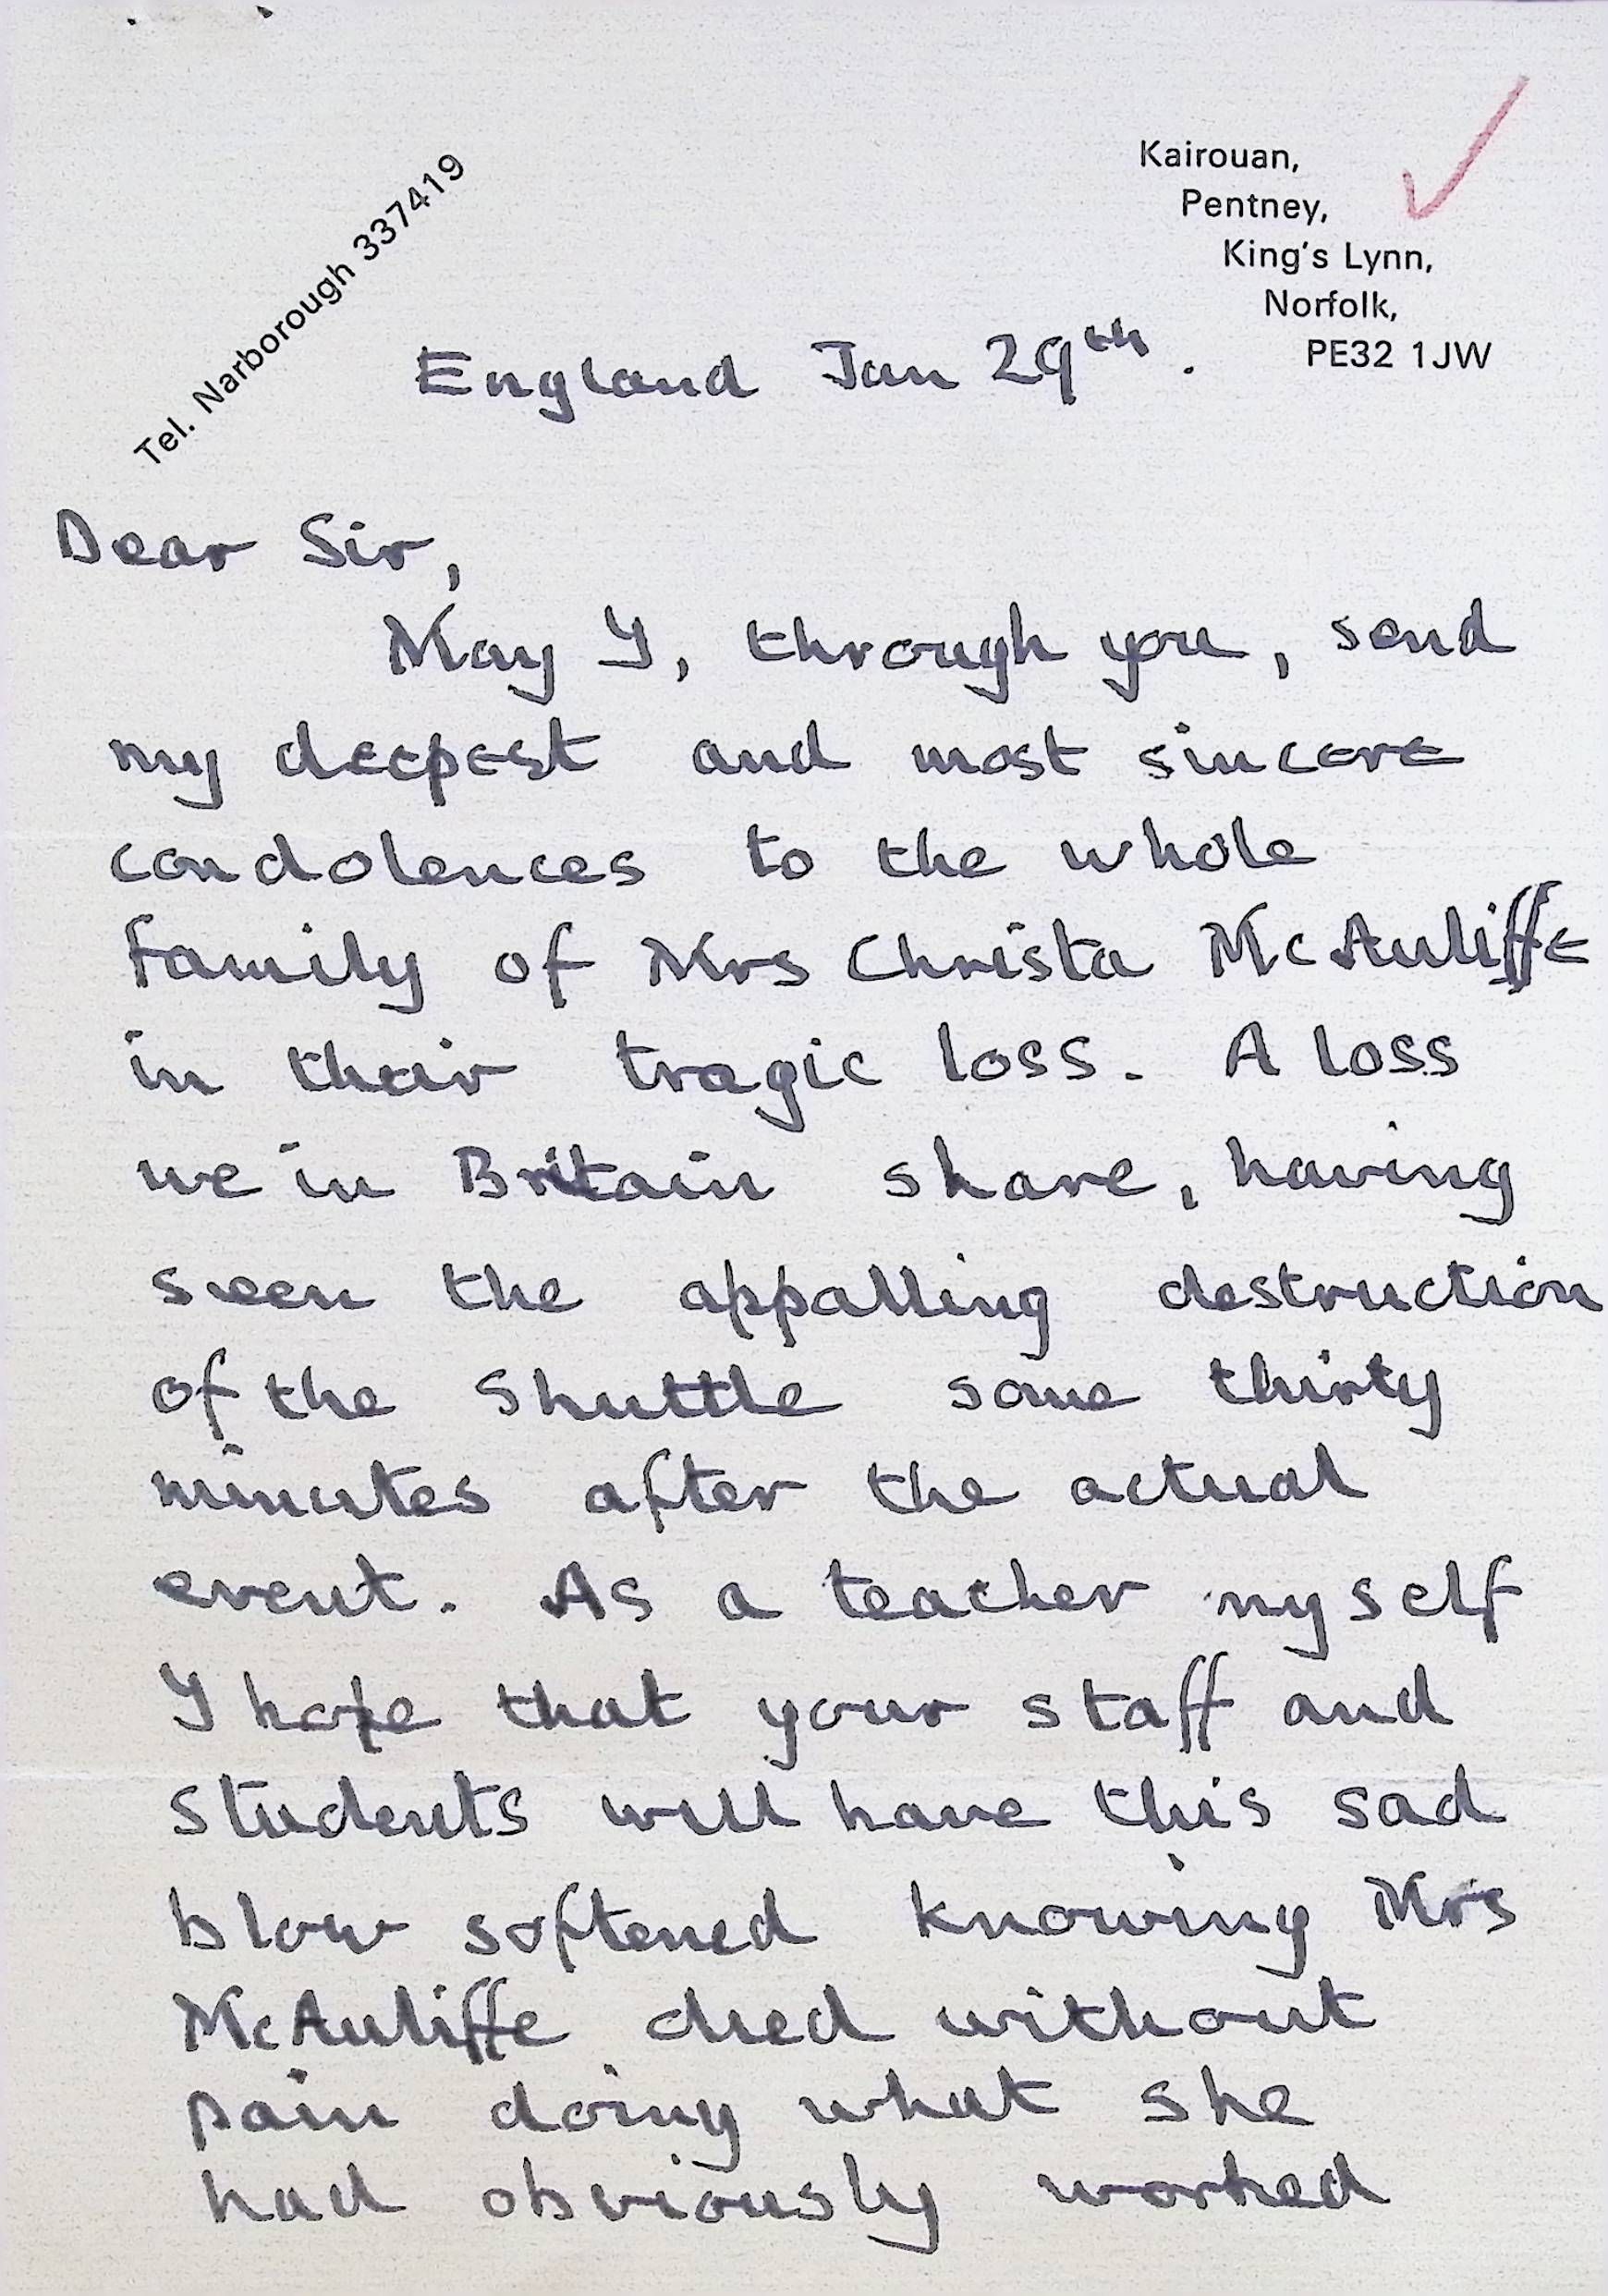 Tel. Narborough 337419
Kairouan,
Pentney,
King's Lynn,
Norfolk,
PE32 1JW
England Jan 29th.
Dear Sir,
May I, through you, send
my deepest and most sincere
condolences to the whole
family of Mrs Christa McAuliffe
in their tragic loss. A loss
we in Britain share, having
seen the appalling destruction
of the Shuttle some thirty
minutes after the actual
event. As a teacher myself
I hope that your staff and
students will have this sad
blow softened knowing Mrs
McAuliffe died without
pain doing what she
had obviously worked